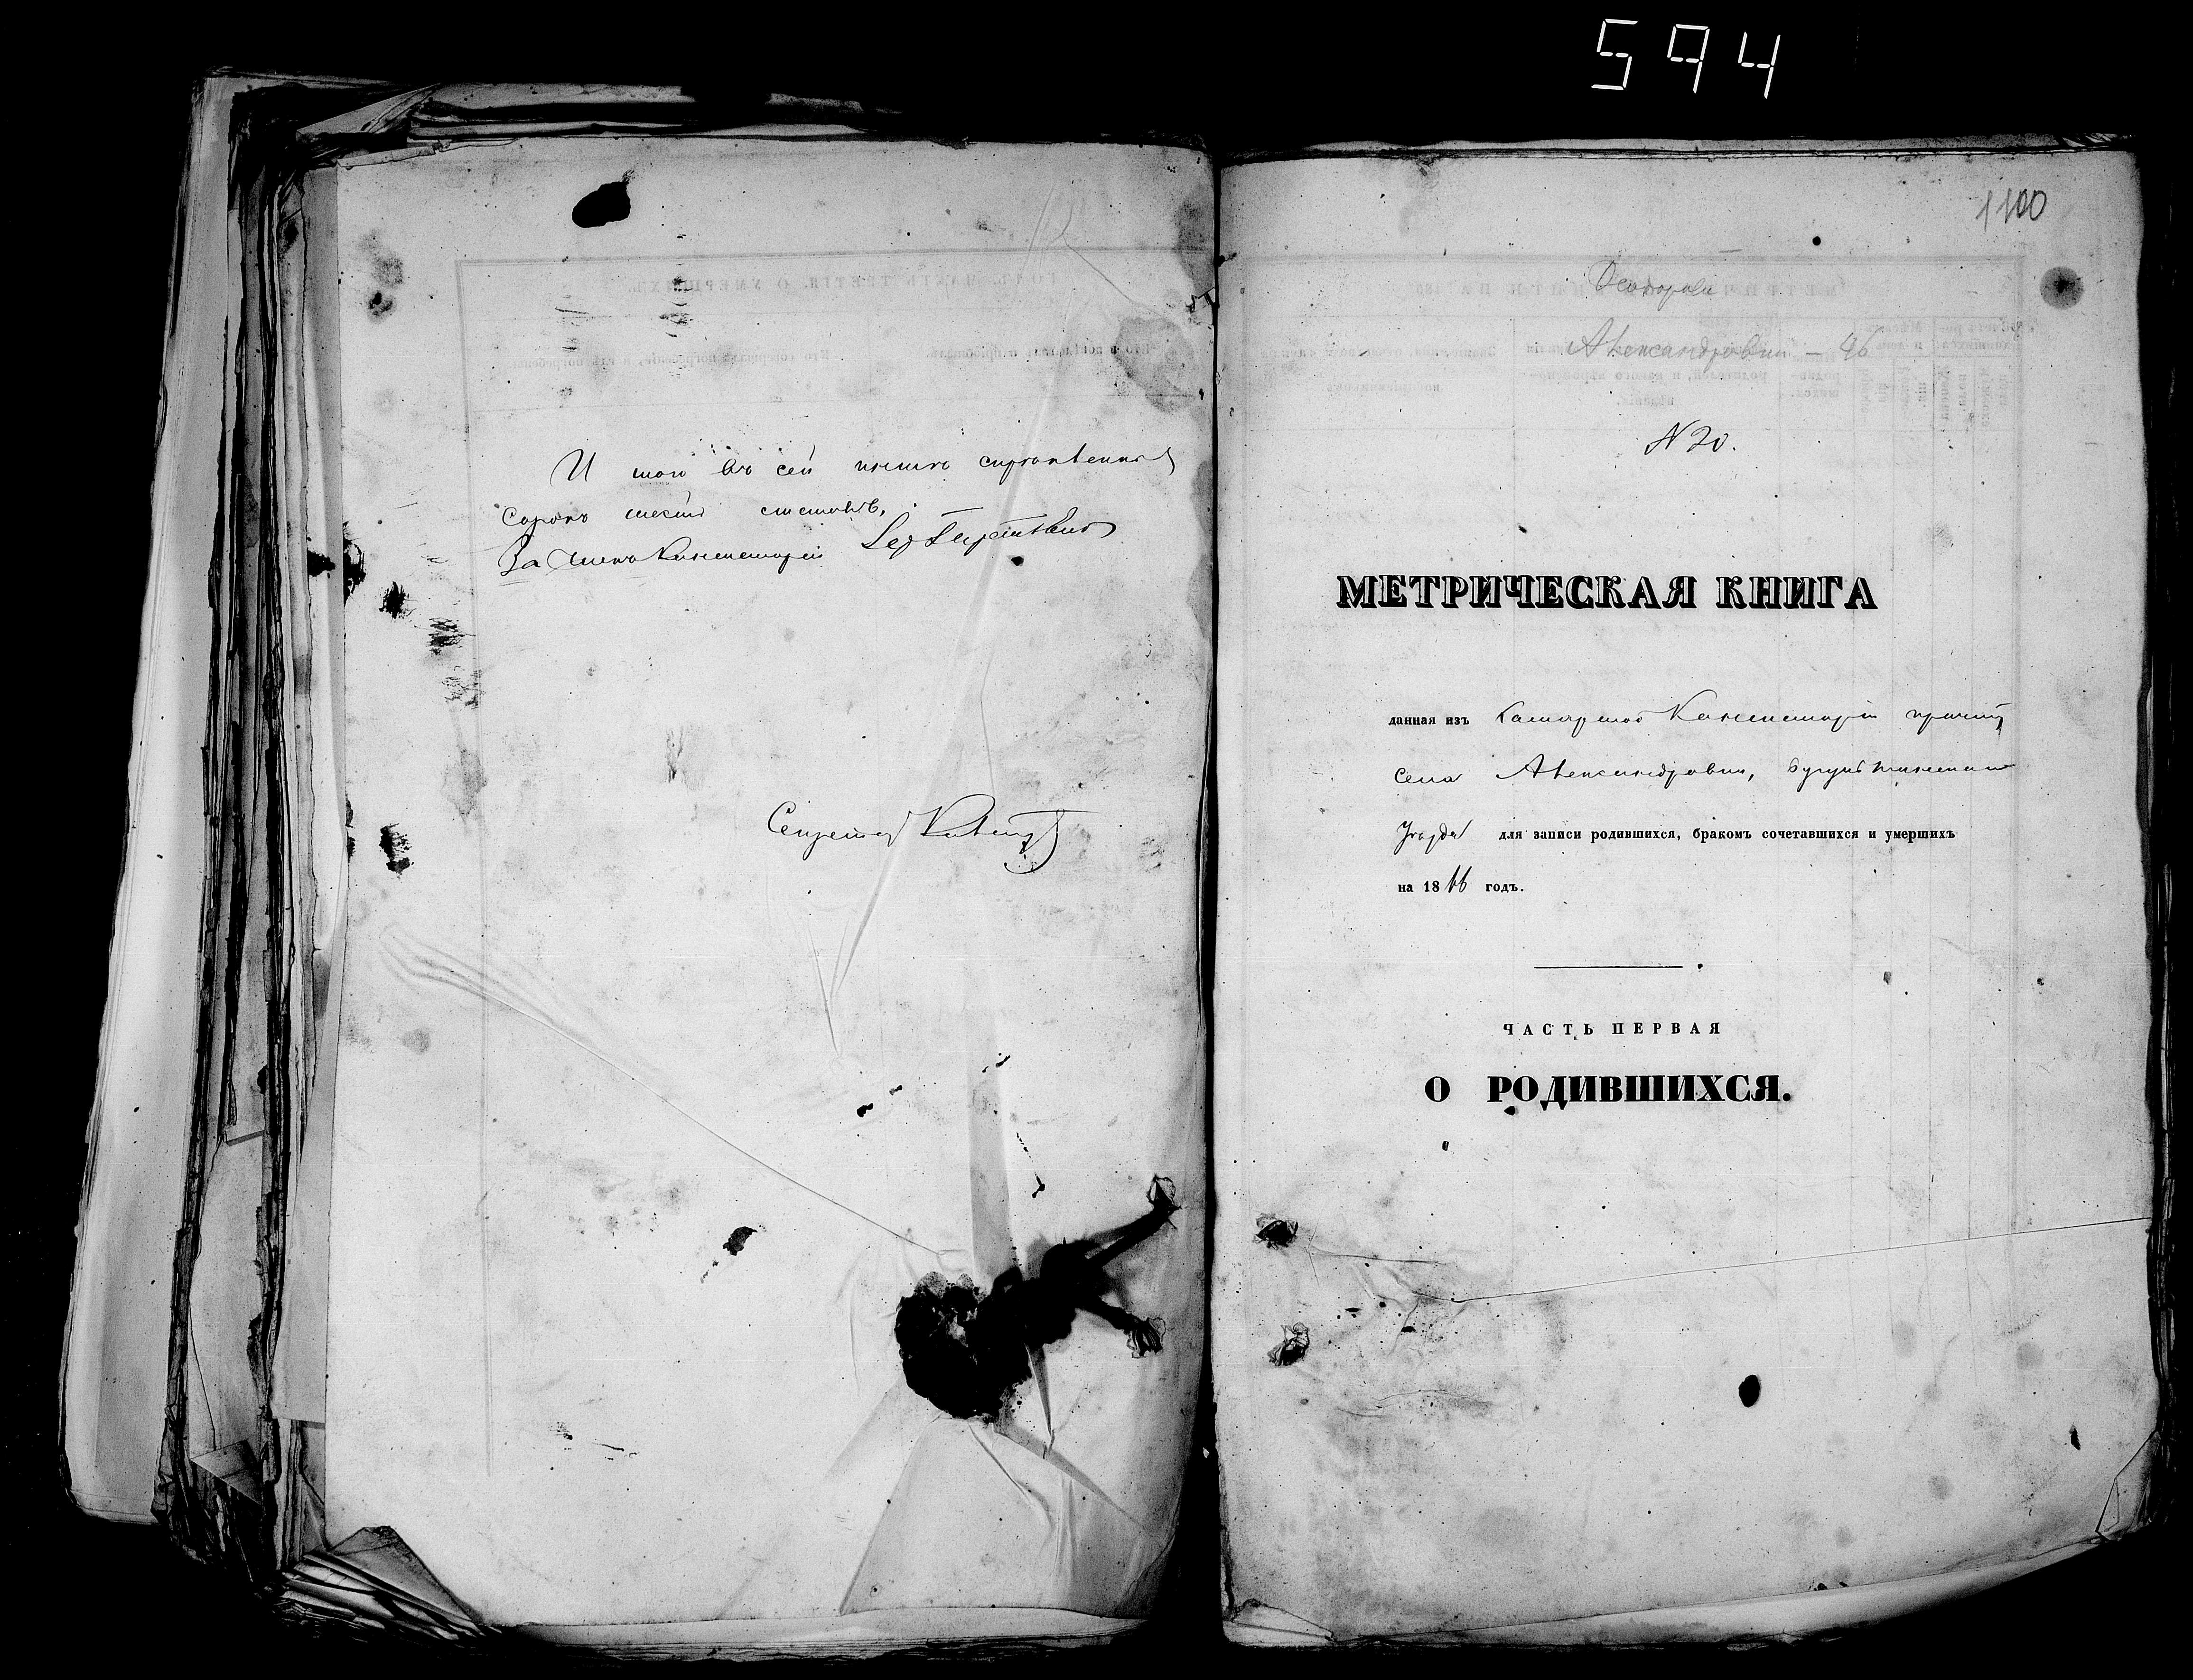 594
И того въ сей книгѣ
Сорокъ шесть листовъ.
За Члена Консисторіи
Секретарь
1100
Александровки — 46
N 20.
МЕТРИЧЕСКАЯ КНИГА
данная изъ Самарской Консисторіи причту
села Александровки, Бугульминскаго
Уѣзда для записи родившихся, бракомъ сочетавшихся и умершихъ
на 1866 годъ.
ЧАСТЬ ПЕРВАЯ
О РОДИВШИХСЯ.